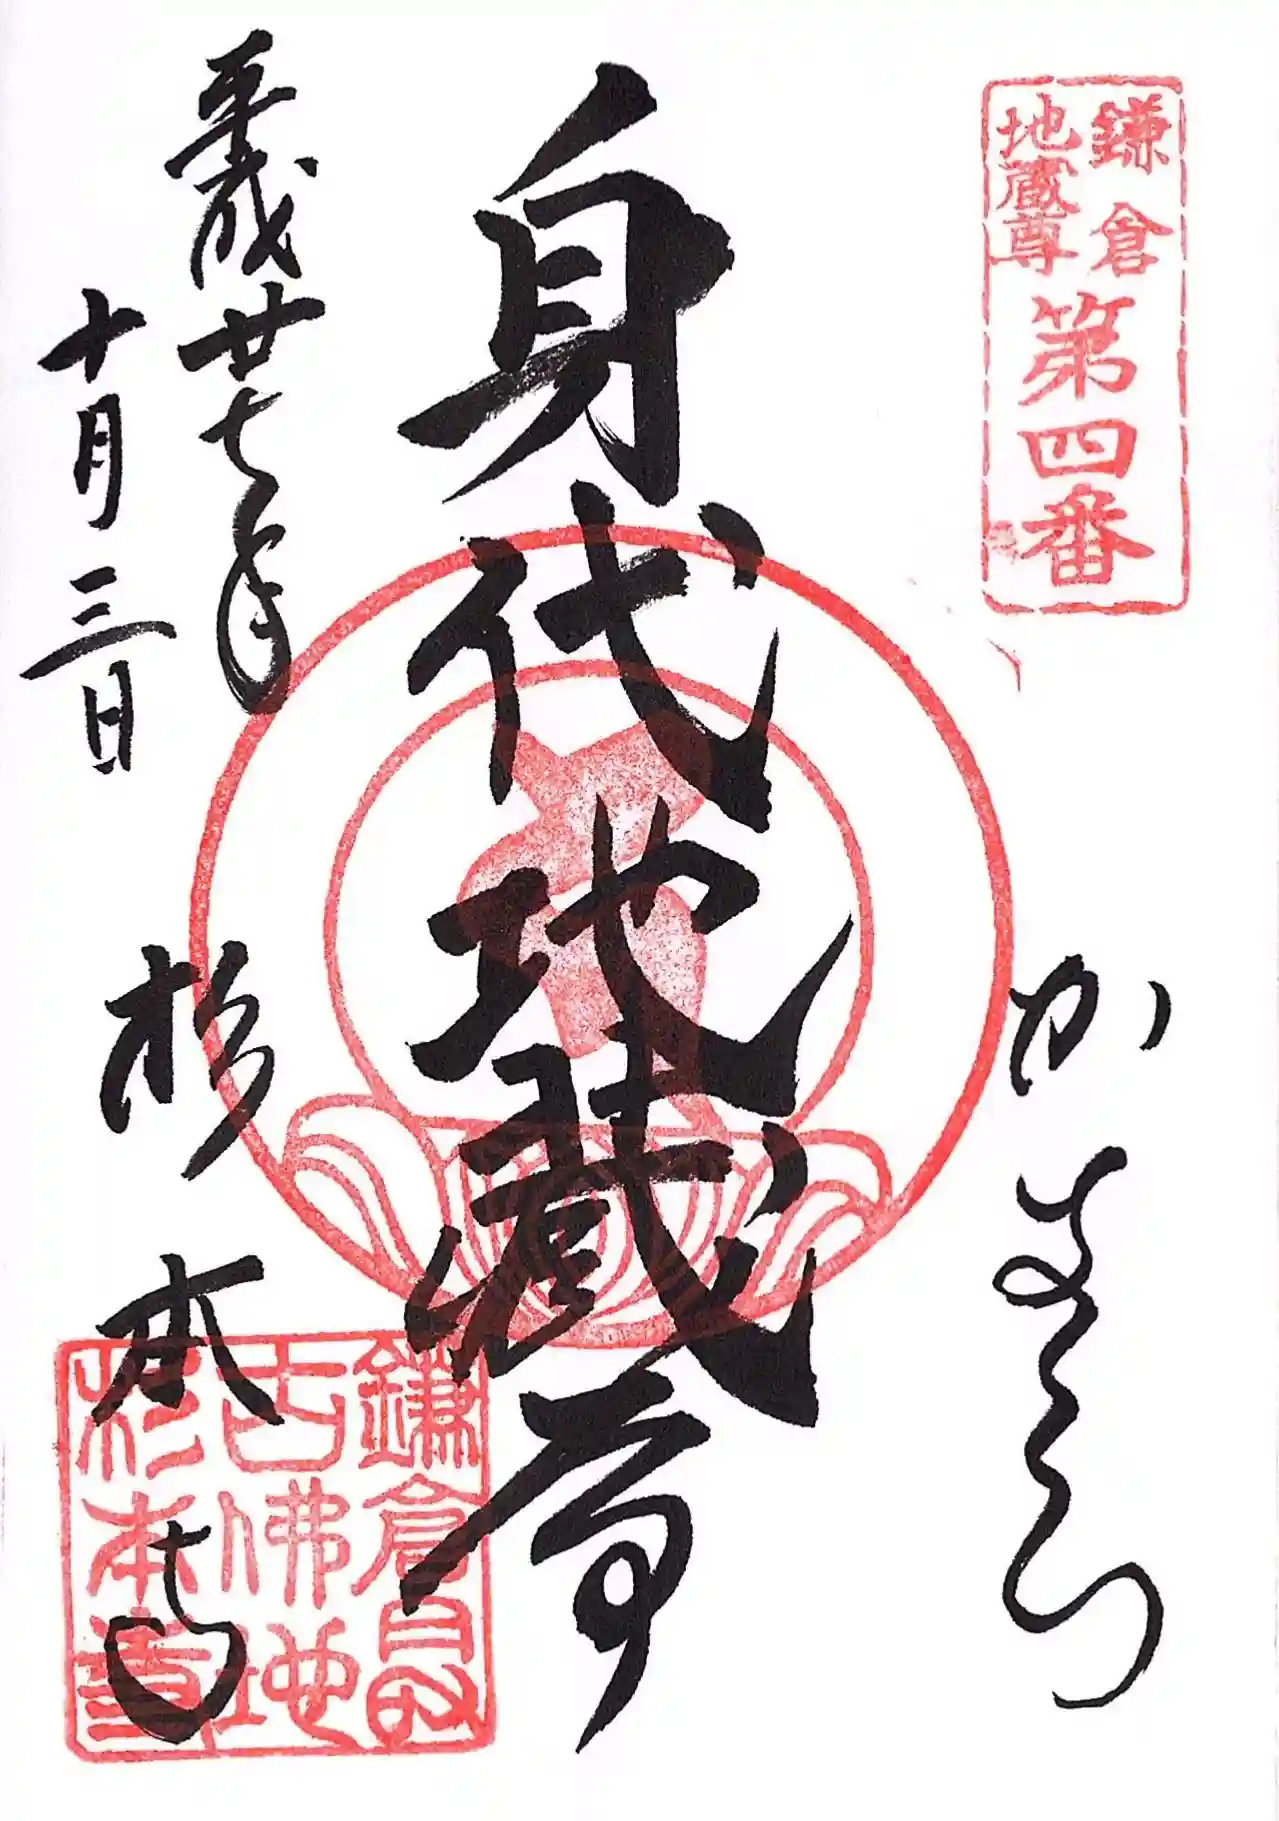 鎌倉
地蔵尊
第四番
かまくら
身代地蔵尊
平成廿七年
十月三日
杉本寺
鎌倉最
古佛地
杉本寺